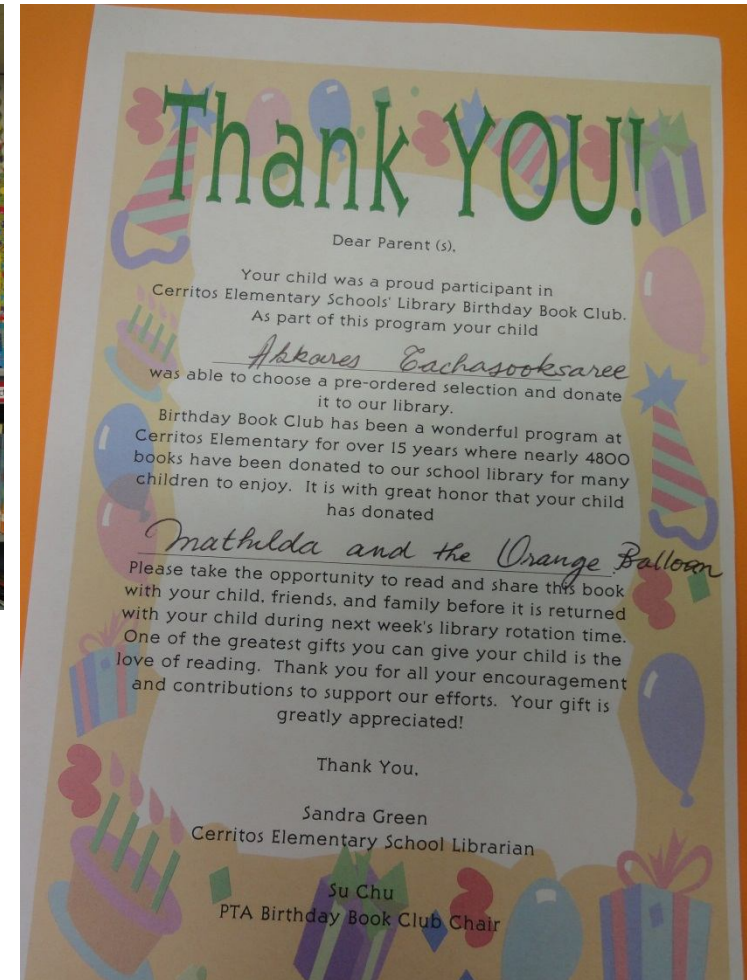 Thank YOU!
Dear Parent (s),
Your child was a proud participant in
Cerritos Elementary Schools' Library Birthday Book Club.
As part of this program your child
Akkares Tachasooksaree
was able to choose a pre-ordered selection and donate
it to our library.
Birthday Book Club has been a wonderful program at
Cerritos Elementary for over 15 years where nearly 4800
books have been donated to our school library for many
children to enjoy. It is with great honor that your child
has donated
Mathilda and the Orange Balloon
Please take the opportunity to read and share this book
with your child, friends, and family before it is returned
with your child during next week's library rotation time.
One of the greatest gifts you can give your child is the
love of reading. Thank you for all your encouragement
and contributions to support our efforts. Your gift is
greatly appreciated!
Thank You,
Sandra Green
Cerritos Elementary School Librarian
Su Chu
PTA Birthday Book Club Chair